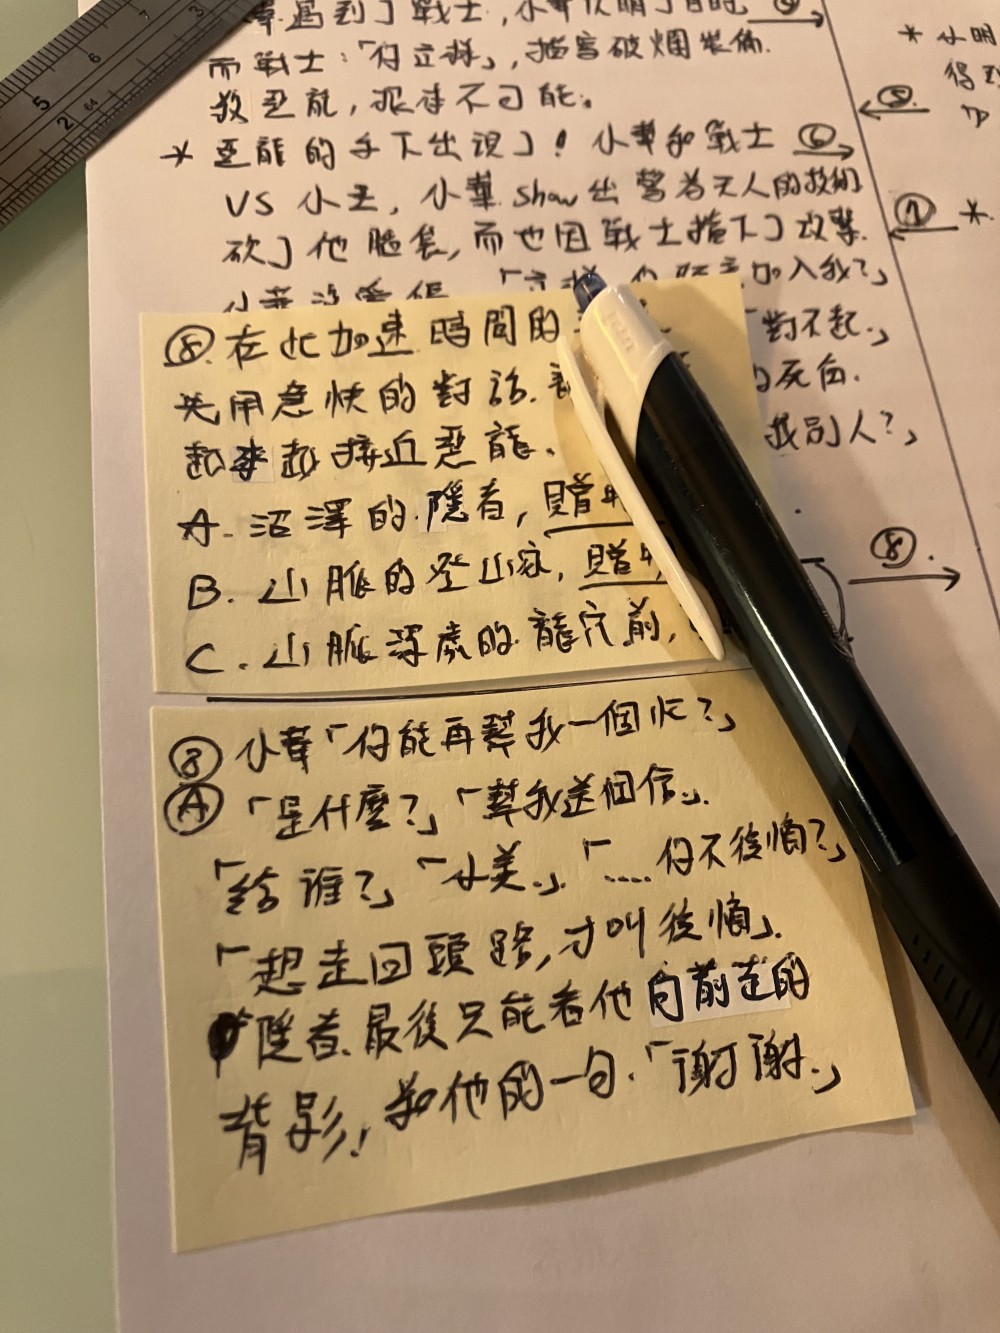 華遇到了戰士,小華表明了目的 ④
而戰士:「行立謀」,描寫破爛裝備.
救惡龍,根本不可能。
* 惡龍的手下出現了! 小華和戰士 ⑥
VS 小王, 小華 show 出 旁若无人的救的
砍了他腦袋,而也因戰士擋下了攻擊.
加入我?」
「對不起.」
的死白.
找別人?」
⑧. 在此加速時間的
先用急快的對話.
越來越接近惡龍、
A. 沼澤的隱者, 贈
B. 山脈的登山家, 贈
C. 山脈深處的龍穴前,
⑧.
⑧ 小華「你能再幫我一個忙?」
Ⓐ 「是什麼?」「幫我送個信」.
「給誰?」「小美」.「..... 你不後悔?」
「想走回頭路,才叫後悔」.
隱者、最後只能看他向前走的
背影, 和他的一句.「謝謝.」
* 小明
⑤.
⑦ *.
5 6 7 3 2 64